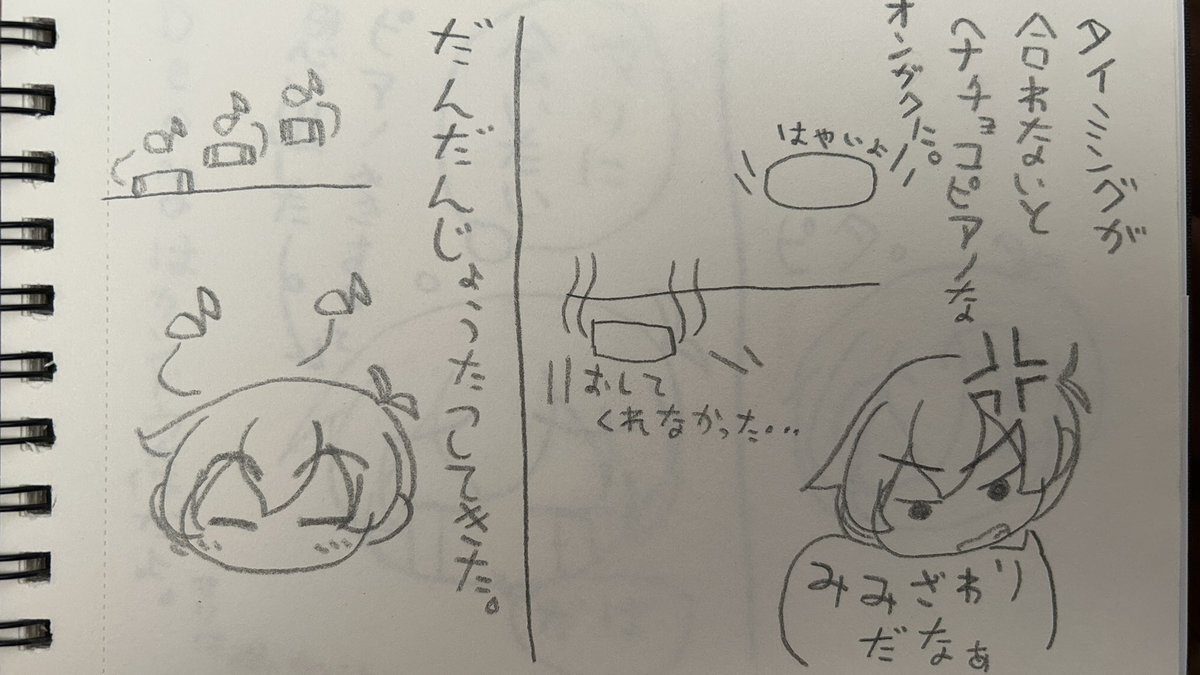 タイミングが
合わないと
ヘナチョコピアノな
オンガクに。
はやいよ
おして
くれなかった…
みみざわり
だなぁ
だんだんじょうたつしてきた。